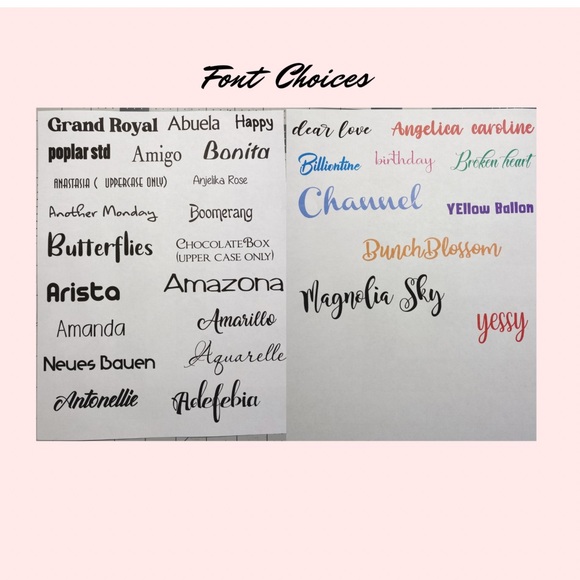 Font Choices
Grand Royal Abuela Happy
poplar std Amigo Bonita
ANASTASIA ( UPPERCASE ONLY) Anjelika Rose
Another Monday Boomerang
Butterflies CHOCOLATEBOX
(UPPER CASE ONLY)
Arista Amazona
Amanda Amarillo
Neues Bauen Aquarelle
Antonellie Adefebia
dear love Angelica caroline
Billiontine birthday Broken heart
Channel YEllow Ballon
BunchBlossom
Magnolia Sky
yessy